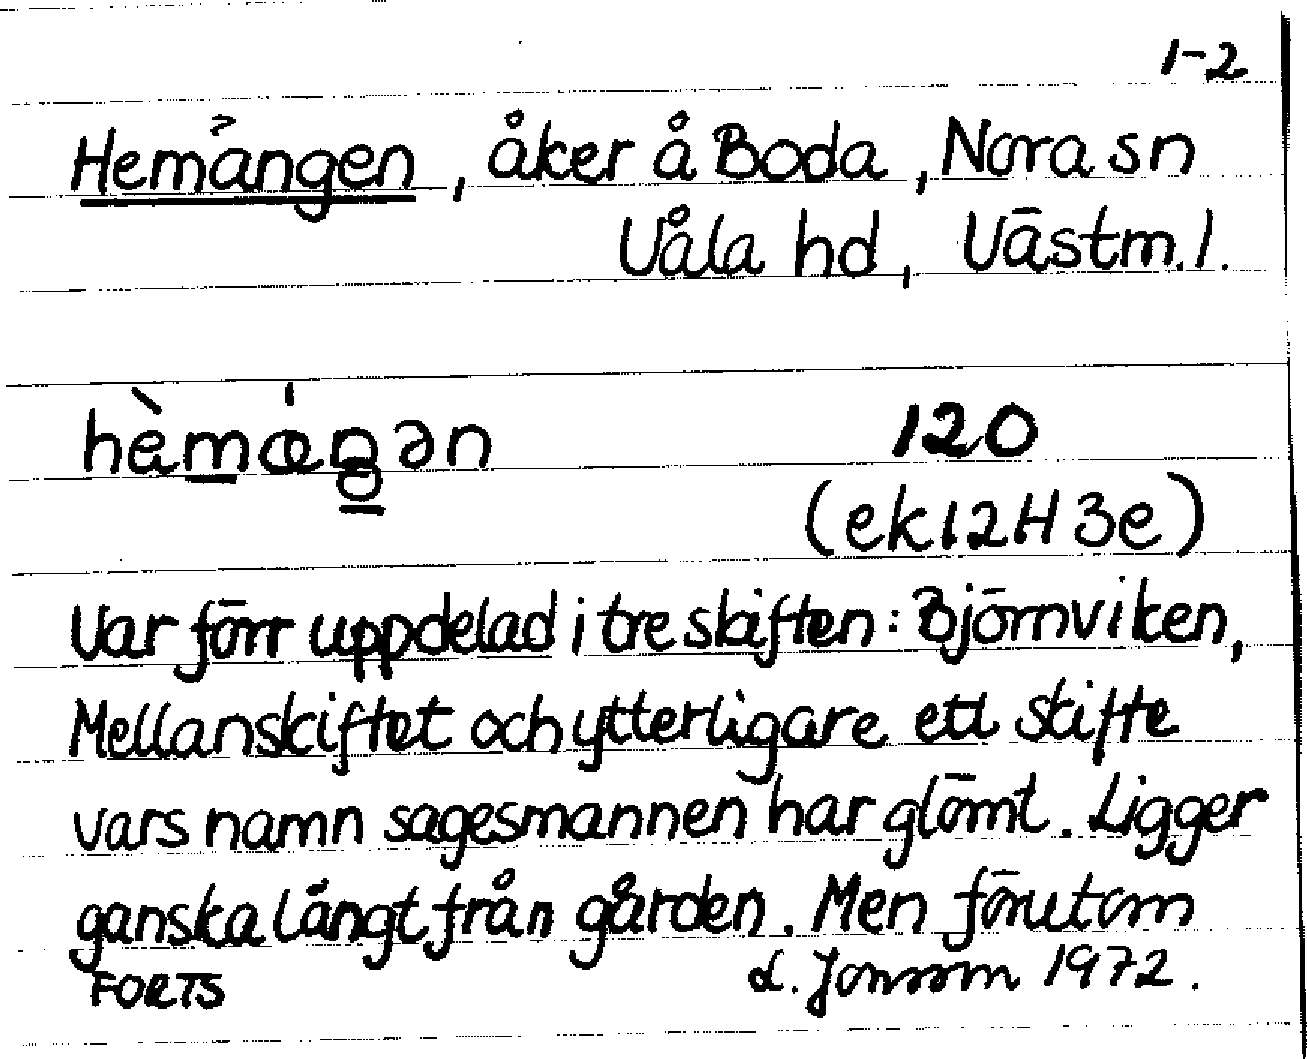 1-2
Hemängen, åker å Boda, Nora sn
Våla hd, Västm.l.
hèmǽŋən 120
(ek 12H 3e)
Var förr uppdelad i tre skiften: Björnviken,
Mellanskiftet och ytterligare ett skifte
vars namn sagesmannen har glömt. Ligger
ganska långt från gården. Men förutom
FORTS L. Jonsson 1972.